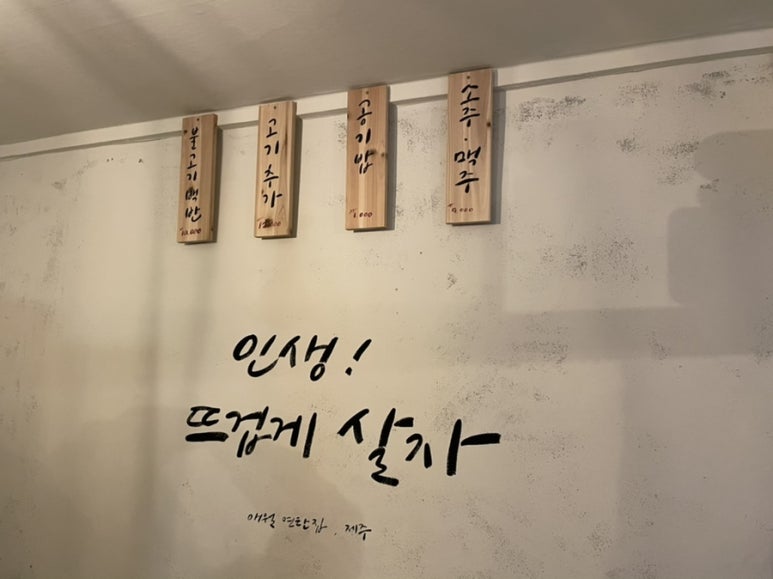 불고기백반
고기추가
공기밥
₩1,000
소주·맥주
인생!
뜨겁게 살자
애월 연탄집, 제주